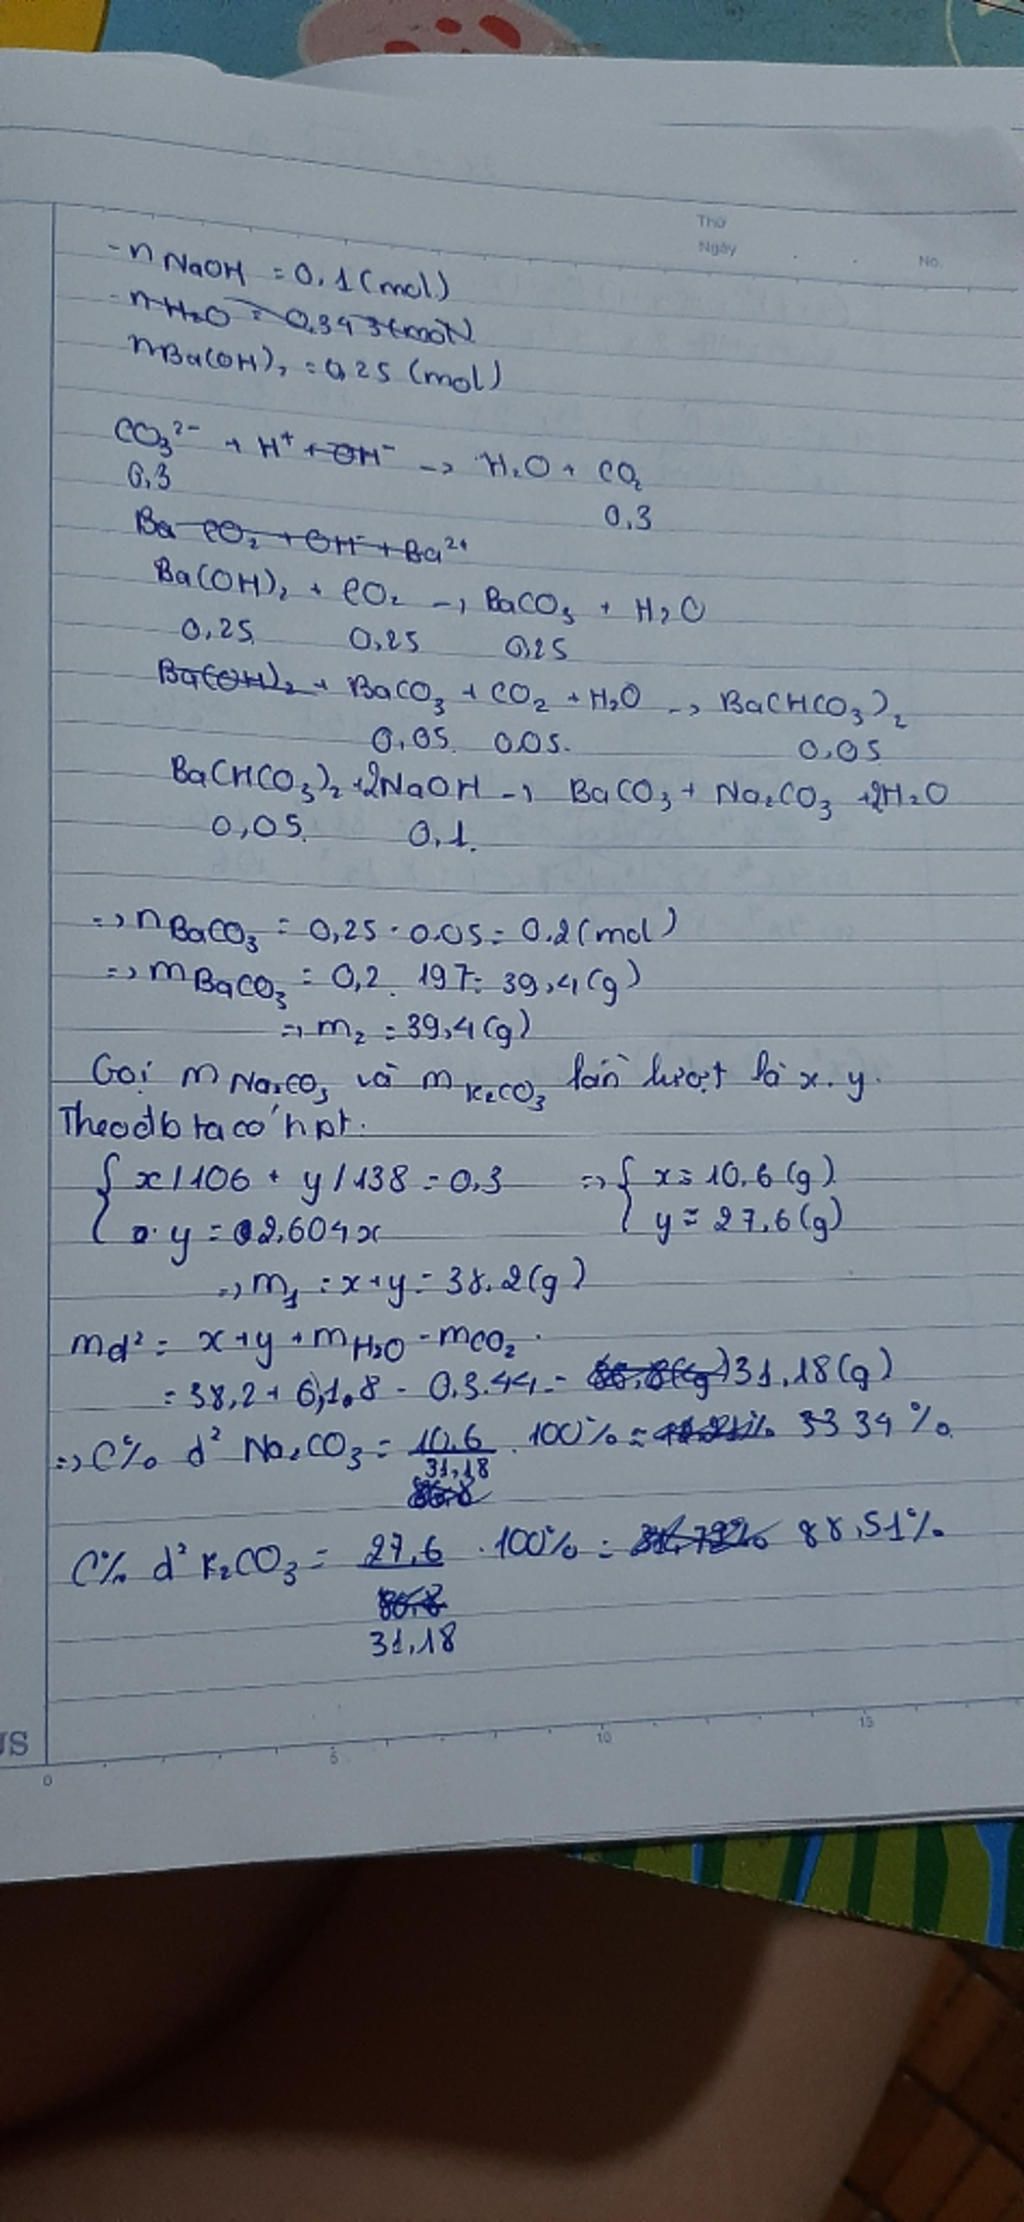 Thứ
Ngày
No.
- n NaOH = 0,1 (mol)
- nH₂O = 0,343 (mol)
nBa(OH)₂ = 0,25 (mol)
CO₃²⁻ + H⁺ + OH⁻ -> H₂O + CO₂
0,3
0,3
Ba CO₂ + OH⁻ + Ba²⁺
Ba(OH)₂ + CO₂ -> BaCO₃ + H₂O
0,25 0,25 0,25
Ba(OH)₂ + BaCO₃ + CO₂ + H₂O -> Ba(HCO₃)₂
0,05 0,05. 0,05
Ba(HCO₃)₂ + 2NaOH -> BaCO₃ + Na₂CO₃ + 2H₂O
0,05 0,1.
=> n BaCO₃ = 0,25 - 0,05 = 0,2 (mol)
=> m BaCO₃ = 0,2 . 197 = 39,4 (g)
=> m₂ = 39,4 (g)
Gọi m Na₂CO₃ và m K₂CO₃ lần lượt là x. y.
Theo đb ta có hpt.
{ x/106 + y/138 = 0,3 => { x = 10,6 (g)
y = 2,604x y = 27,6 (g)
=> m₁ = x + y = 38,2 (g)
md² = x + y + mH₂O - mCO₂.
= 38,2 + 6,1.8 - 0,3.44 = 31,18 (g)
=> C% d² Na₂CO₃ = 10,6 / 31,18 . 100% = 33 34 %.
86,8
C% d² K₂CO₃ = 27,6 . 100% = 88,51%
86,8
31,18
US
0 5 10 15